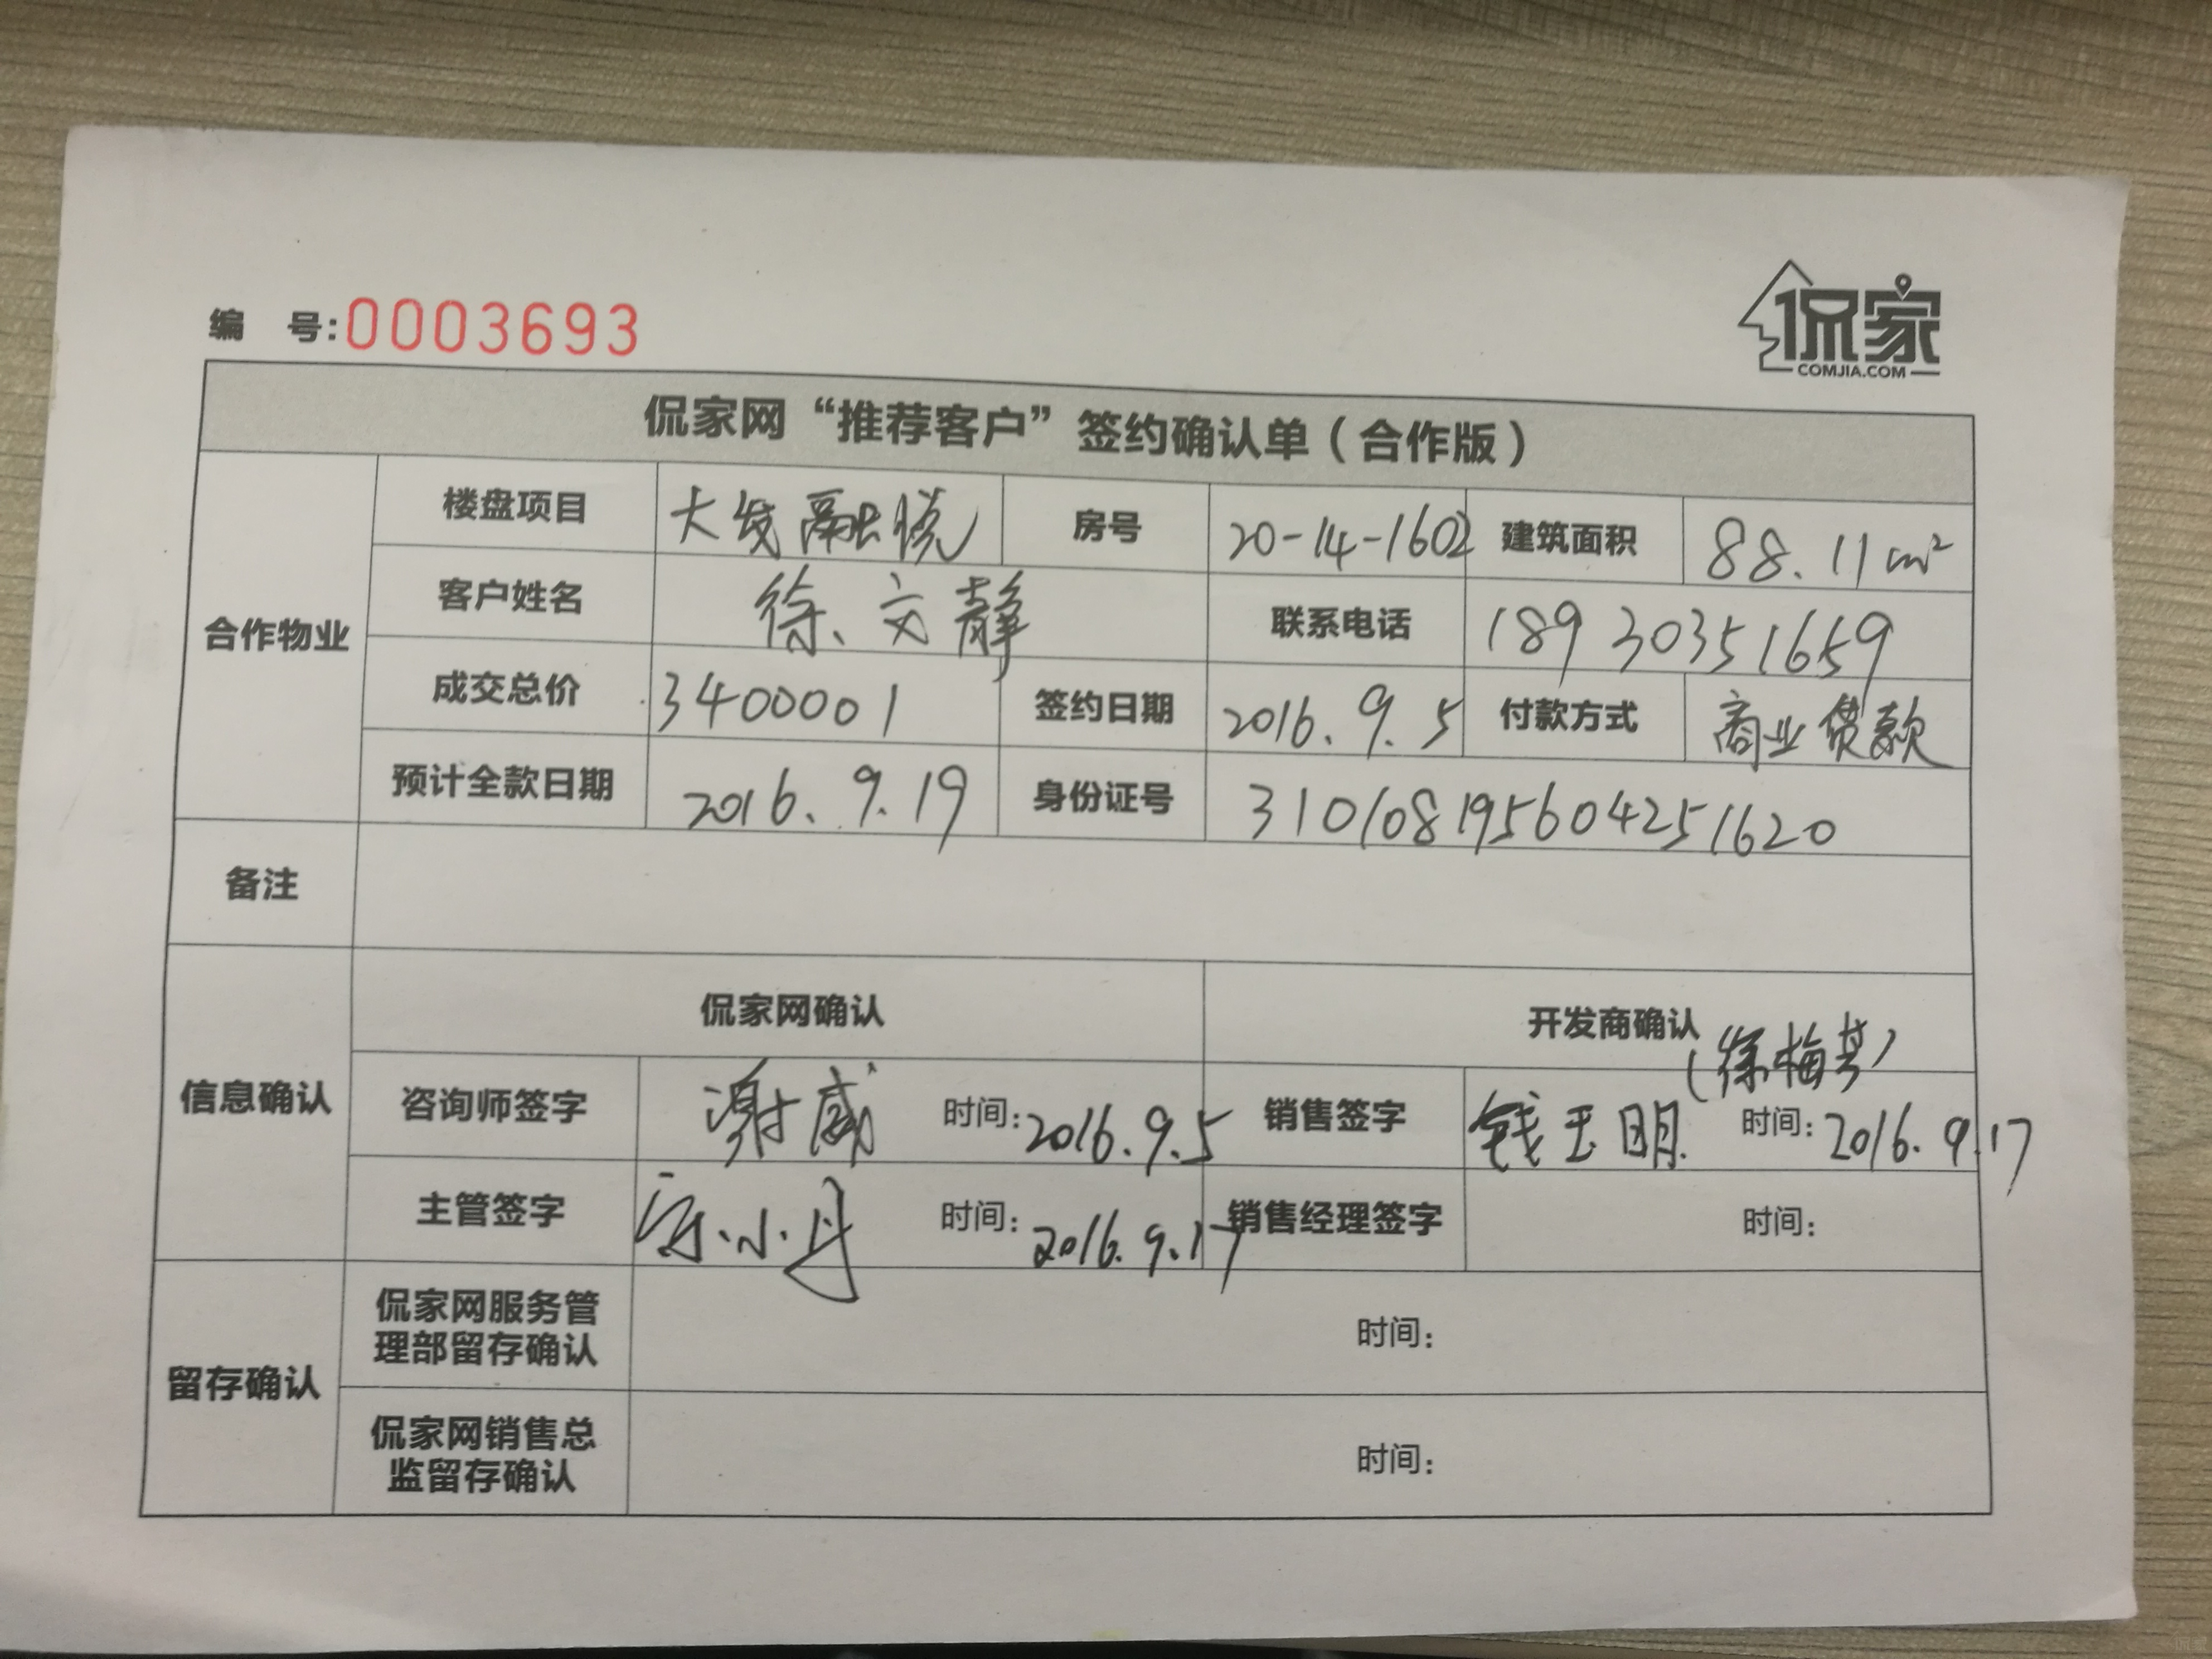 编 号:0003693
侃家
COMJIA.COM
侃家网“推荐客户”签约确认单(合作版)
合作物业
楼盘项目 大发融悦 房号 20-14-1602 建筑面积 88.11m²
客户姓名 徐文静 联系电话 18930351659
成交总价 3400001 签约日期 2016.9.5 付款方式 商业贷款
预计全款日期 2016.9.19 身份证号 310108195604251620
备注
信息确认
侃家网确认 开发商确认
咨询师签字 谢威 时间:2016.9.5 销售签字 钱玉明 时间:2016.9.17
主管签字 小丹 时间:2016.9.17 销售经理签字 时间:
留存确认
侃家网服务管
理部留存确认 时间:
侃家网销售总
监留存确认 时间: